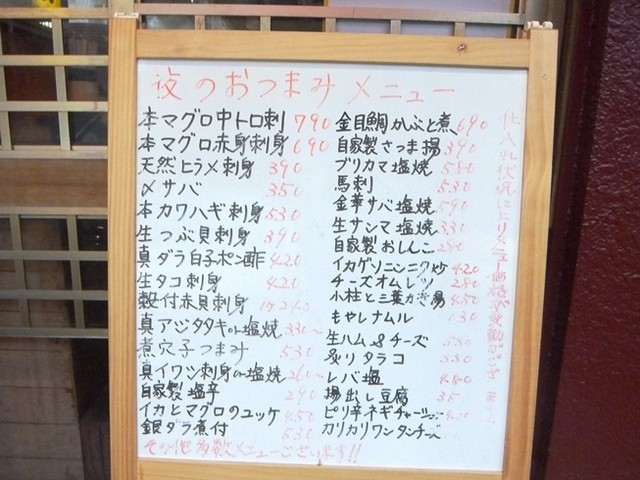 夜のおつまみメニュー
本マグロ中トロ刺 790
本マグロ赤身刺身 690
天然ヒラメ刺身 390
〆サバ 350
本カワハギ刺身 530
生つぶ貝刺身 390
真ダラ白子ポン酢 420
生タコ刺身 420
殻付赤貝刺身
真アジタタキor塩焼 330~
煮穴子つまみ 530
真イワシ刺身or塩焼 260~
自家製塩辛 290
イカとマグロのユッケ 450
銀ダラ煮付 530
その他多数メニューございます!!
金目鯛かぶと煮 690
自家製さつま揚 390
ブリカマ塩焼 580
馬刺 530
金華サバ塩焼 590
生サンマ塩焼 330
自家製おしんこ 290
イカゲソニンニク炒 420
チーズオムレツ 280
小柱と三葉かき揚 450
もやしナムル 130
生ハム&チーズ
炙りタラコ 330
レバ塩
揚出し豆腐
ピリ辛ネギチャーシュー
カリカリワンタンチーズ
仕入れ状況によりメニュー価格が変動